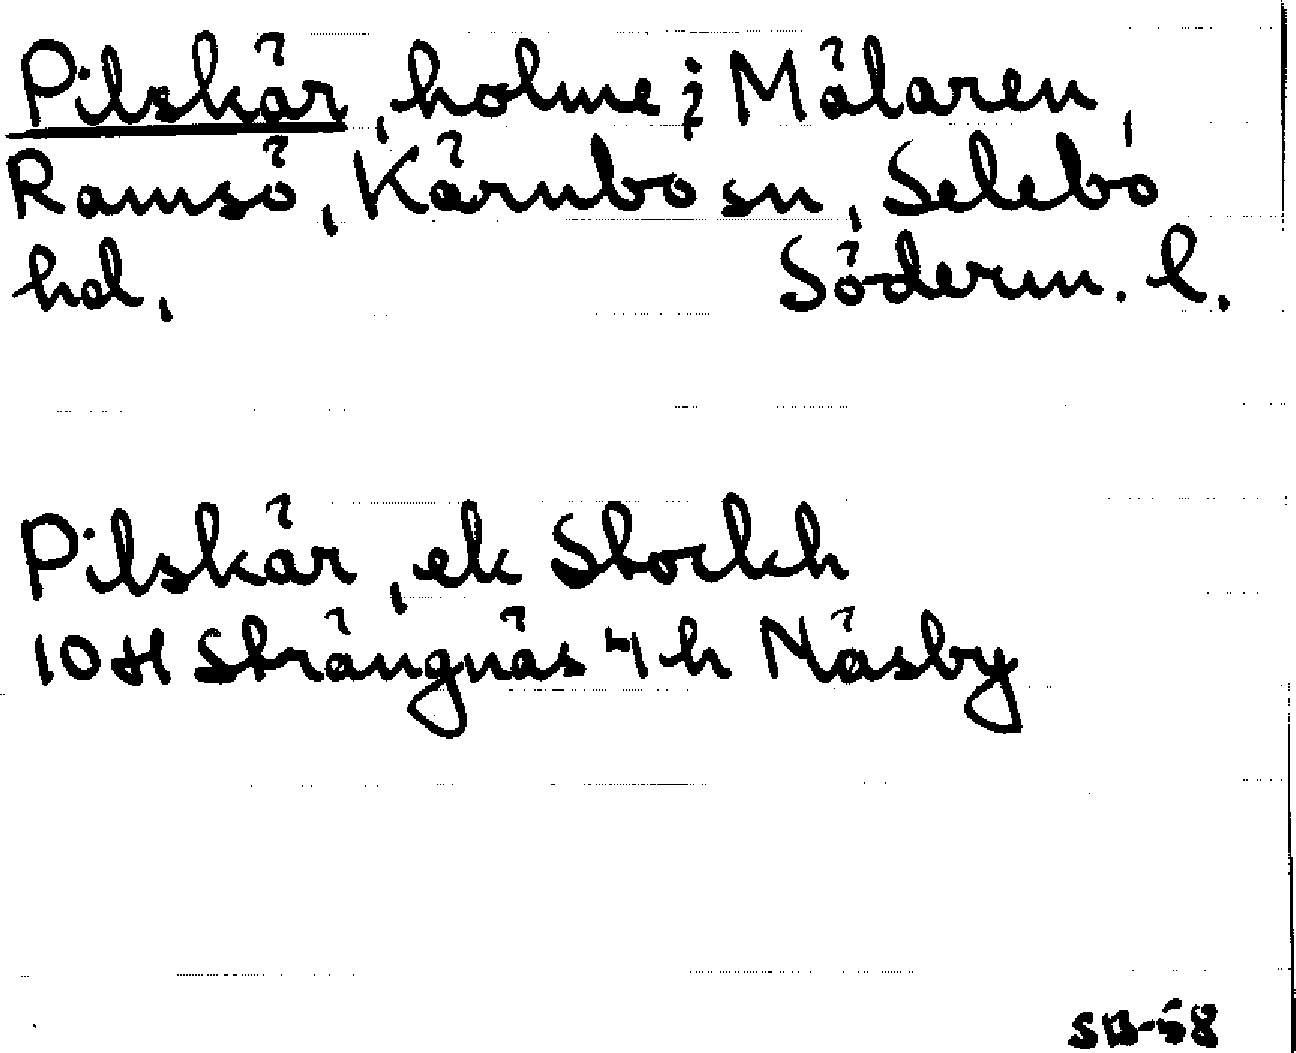 Pilskär, holme i Mälaren,
Ramsö, Kärnbo sn, Selebo
hd, Söderm. l.
Pilskär, ek Stockh
10 H Strängnäs 4 h Näsby
SB-68